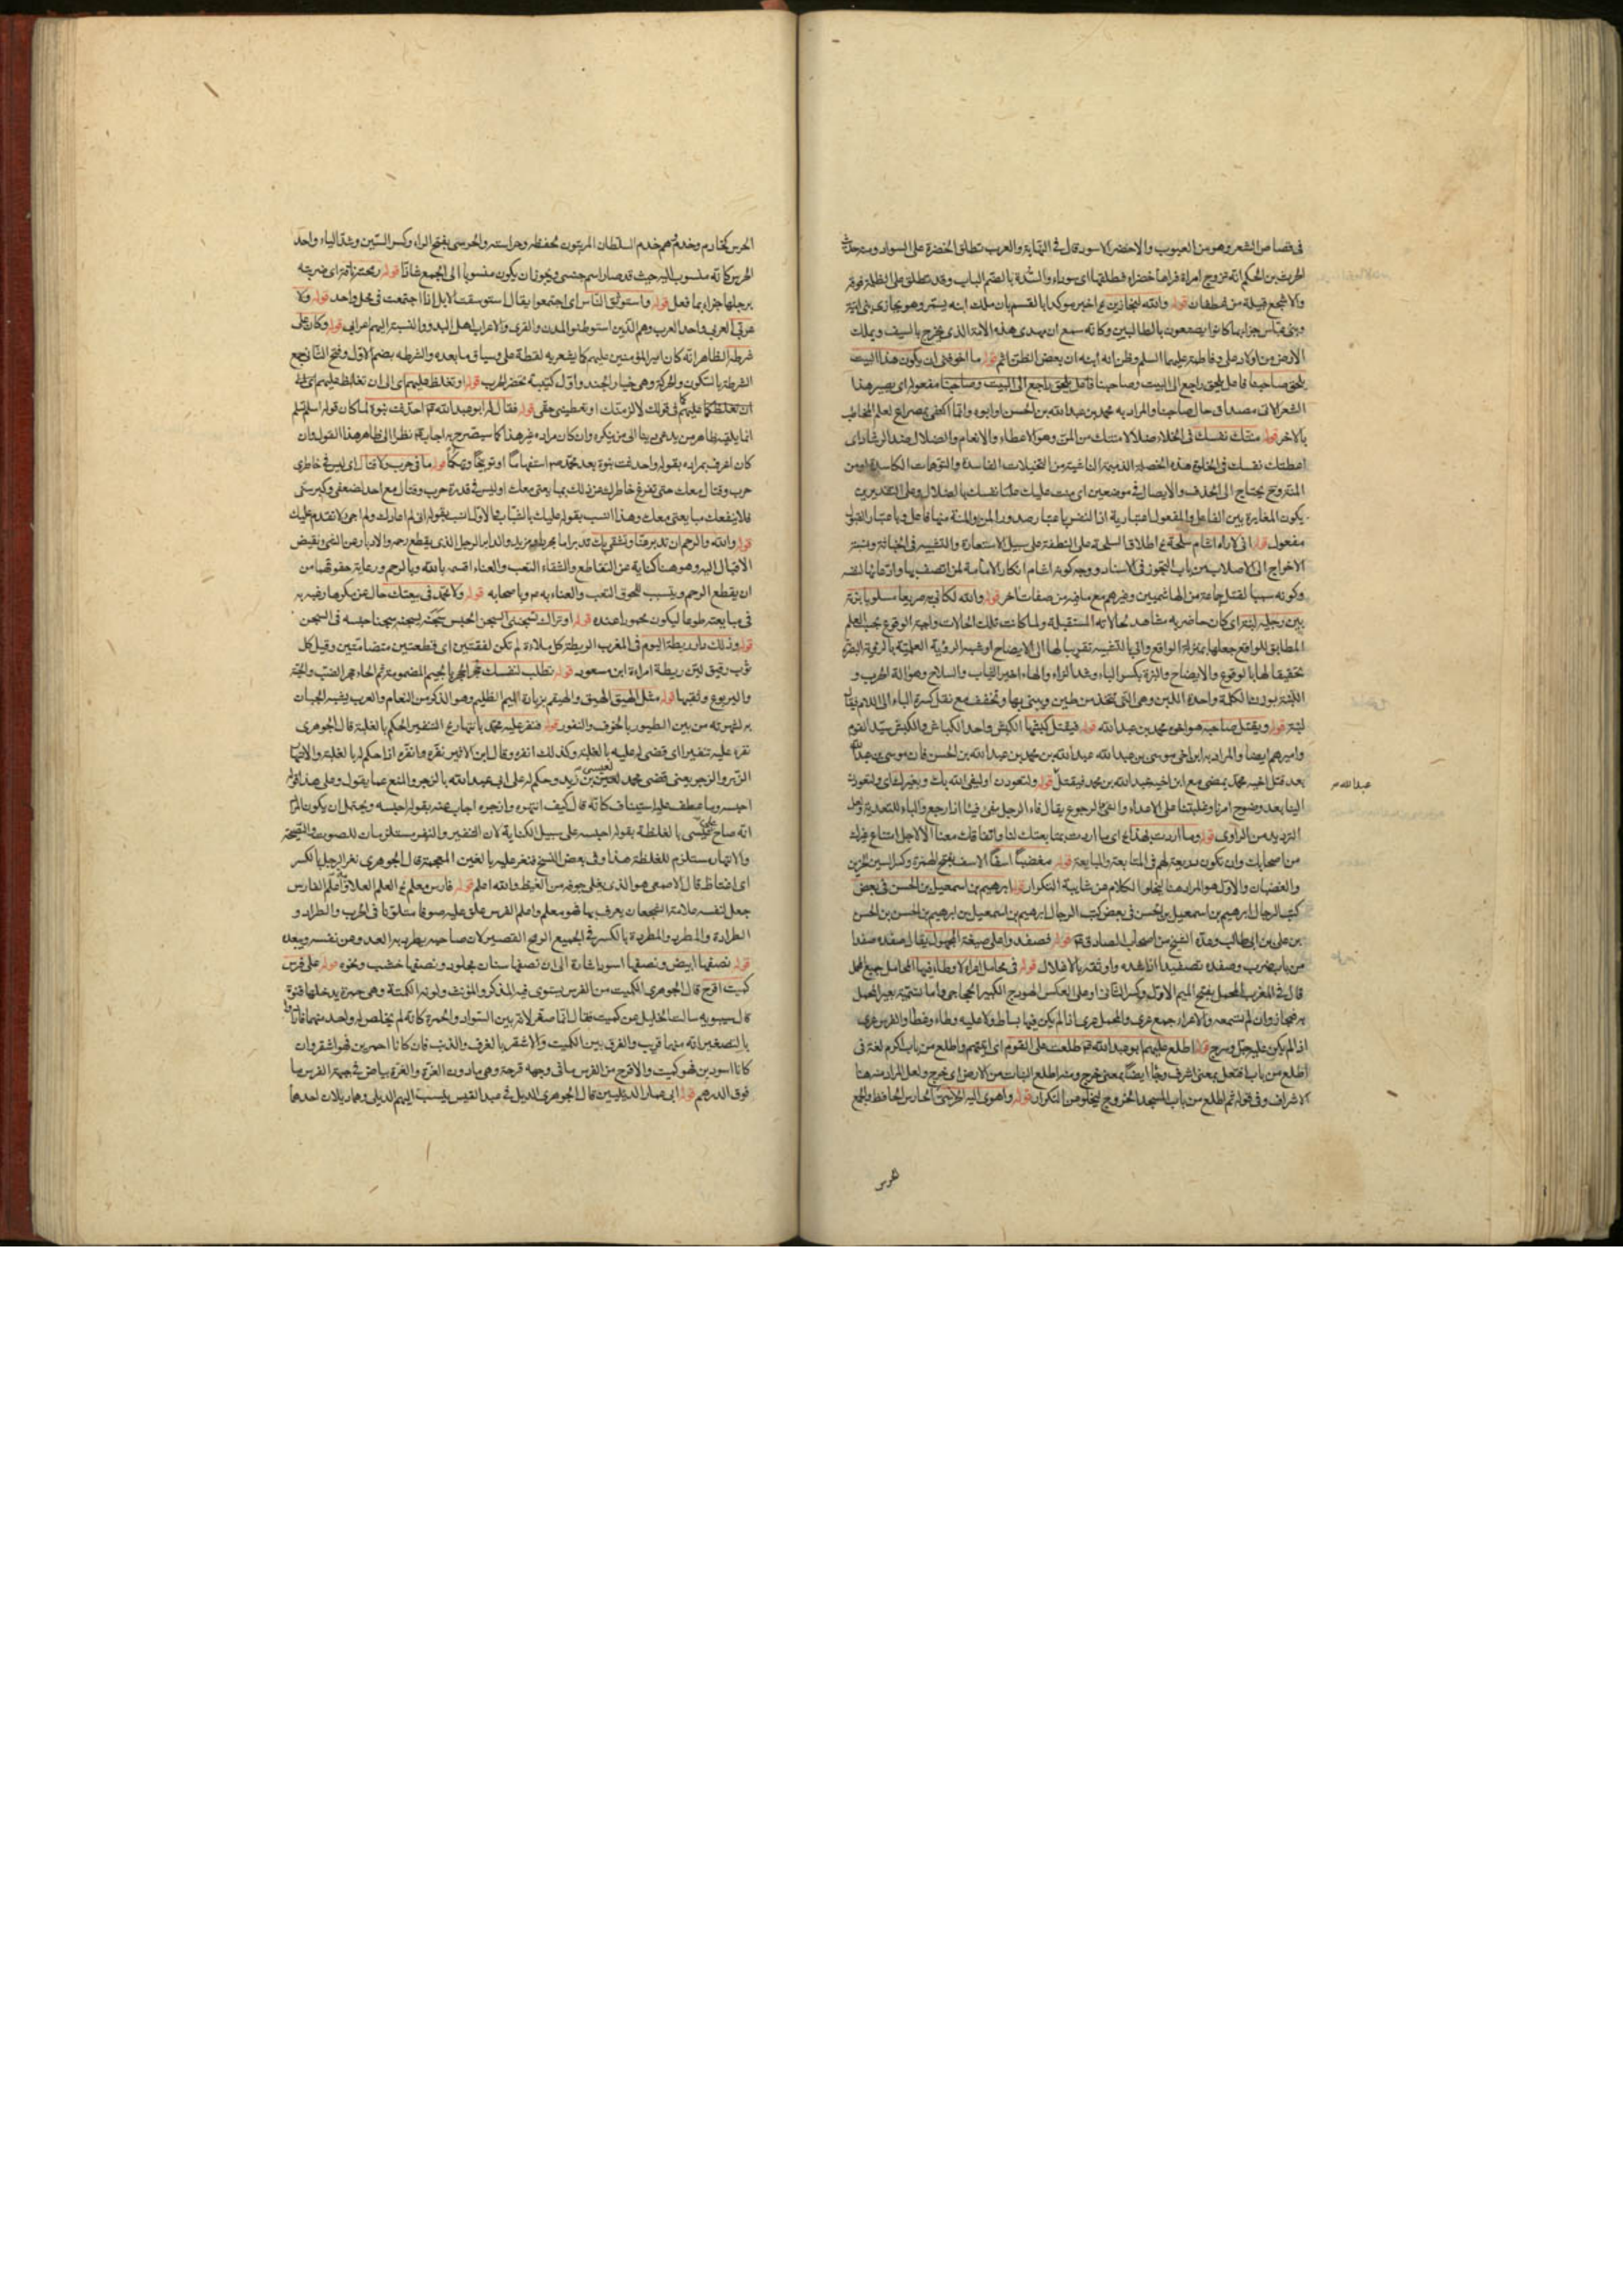 في قصاص الشعر وهو من العيوب والاخضر الاسود قال في النهاية والعرب تطلق الخضرة على السواد ومنه حديث
الحرث بن الحكم انه تزوج امراة فراها خضراء فطلقها اى سوداء والسدة بالضم الباب وقد تطلق على الظلة فوقه
والاشجع قبيلة من غطفان قوله والله ليجازين به اخبر موكدا بالقسم بان ملك ابنه يستمر وهو يجازى بنى امية
وبنى عباس جزاء بما كانوا يصنعون بالطالبيين وكانه سمع ان مهدى هذه الامة الذى يخرج بالسيف ويملك
الارض من اولاد على وفاطمة عليهما السلم وظن انه ابنه ان بعض الظن اثم قوله ما اخوفنى ان يكون هذا البيت
يلحق صاحبنا فاعل يلحق راجع الى البيت وصاحبنا مفعوله اى يصير هذا
الشعر الان مصداق حال صاحبنا والمراد به محمد بن عبد الله بن الحسن او ابوه وانما اكتفى بمصراع لعلم المخاطب
بالاخر قوله منتك نفسك في الخلاء ضلالا منتك من المن وهو الاعطاء والانعام والضلال ضد الرشاد اى
اعطتك نفسك في الخلوة هذه الخصلة الذميمة الناشية من التخيلات الفاسدة والتوهمات الكاسدة او من
يحتاج الى الحذف والايصال في موضعين اى منت عليك نفسك بالضلال وعلى التقديرين
يكون المغايرة بين الفاعل والمفعول اعتبارية اذ النفس باعتبار صدور المن والمنة منها فاعل وباعتبار القبول
مفعول قوله انى لاراه اشام سلحة اطلاق السلحة على النطفة على سبيل الاستعارة والتشبيه في الخباثة ونسبة
الاخراج الى الاصلاب من باب التجوز في الاسناد ووجه كونه اشام انكار الامامة لمن اتصف بها وادعائها لنفسه
وكونه سببا لقتل جماعة من الهاشميين وغيرهم مع ما فيه من صفات اخر قوله والله لكانى به صريعا مسلوبا بزته
بين رجليه لبنة اى كان حاضر به مشاهد لحالاته المستقبلة ولما كانت تلك الحالات واجبة الوقوع بحسب العلم
المطابق للواقع جعلها بمنزلة الواقع واتى بالتشبيه تقريبا لها الى الايضاح او شبه الرؤية العلمية بالرؤية البصرية
تحقيقا لها بالوقوع والايضاح والبزة بكسر الباء وشد الزاء والهاء اخيرا الثياب والسلاح وهو الة الحرب و
اللبنة بوزن الكلمة واحدة اللبن وهى التى تتخذ من طين ويبنى بها وتخفف مع نقل كسرة الباء الى اللام يقال
لبنة قوله ويقتل صاحبه هو اخوه محمد بن عبد الله قوله فيقتل كبشها الكبش واحد الكباش والكبش سيد القوم
واميرهم ايضا والمراد به ابن اخى موسى بن عبد الله عبد الله بن محمد بن عبد الله بن الحسن فان موسى بن عبد الله
بعد قتل اخيه محمد يمضى مع ابن اخيه عبد الله بن محمد فيقتل قوله ولتعودن او ليفئ الله بك وبغيرك اى ولتعودن
عبد الله
الينا بعد وضوح امرنا وغلبتنا على الاعداء والفئ الرجوع يقال فاء الرجل يفئ فيئا اذا رجع والباء للتعدية ولعل
الترديد من الراوى قوله وما اردت بهذا اى ما اردت بمتابعتك لنا واتفاقك معنا الا لاجل امتناع غيرك
من اصحابك وان تكون ذريعة لهم في المتابعة والمبايعة قوله مغضبا اسفا الاسف بفتح الهمزة وكسر السين الحزين
والغضبان والاول هو المراد هنا ليخلو الكلام عن شايبة التكرار قوله ابرهيم بن اسمعيل بن الحسن في بعض
كتب الرجال ابرهيم بن اسمعيل بن الحسن في بعض كتب الرجال ابرهيم بن اسمعيل بن ابرهيم بن الحسن بن الحسن
بن على بن ابى طالب وعده الشيخ من اصحاب الصادق قوله فصفدوا على صيغة المجهول يقال صفده صفدا
من باب ضرب وصفده تصفيدا اذا شده واوثقه بالاغلال قوله في محامل اعراء لا وطاء فيها المحامل جمع المحمل
قال في المغرب المحمل بفتح الميم الاول وكسر الثانى او على العكس الهودج الكبير الحجاجى واما تسمية بعير المحمل
به فمجاز وان لم نسمعه والاعراء جمع عرى والمحمل عرى اذا لم يكن فيها بساط ولا عليه وطاء وغطا والفرس عرى
اذا لم يكن عليه جل وسرج قوله اطلع عليهم ابو عبد الله طلعت على القوم اى اتيتهم واطلع من باب اكرم لغة في
اطلع من باب افتعل بمعنى اشرف وجا ايضا بمعنى خرج ومنه اطلع النبات من الارض اى خرج ولعل المراد منه هنا
الاشراف وفى قوله ثم اطلع من باب المسجد الخروج ليخلو من التكرار قوله واهوى اليه الحرسى الحارس الحافظ والجمع
الحرس
الحرس كخادم وخدم وهم خدم السلطان المرتبون لحفظه وحراسته والحرسى بفتح الراء وكسر السين وشد الياء واحد
الحرس كانه منسوب اليه حيث قد صار اسم جنس ويجوز ان يكون منسوبا الى الجمع شاذا قوله ناقته اى ضربته
برجلها جزاء بما فعل قوله واستوثق الناس اى اجتمعوا يقال استوسقت الابل اذا اجتمعت في محل واحد قوله ولا
عربى العربى واحد العرب وهم الذين استوطنوا المدن والقرى والاعراب اهل البدو والنسبة اليهم اعرابى قوله وكان على
شرطه الظاهر انه كان امير المؤمنين عليهم كما يشعر به لفظة على وسياق ما بعده والشرطة بضم الاول وفتح الثانى جمع
الشرطة بالسكون والحركة وهى خيار الجند واول كتيبة تحضر الحرب قوله او تغلظ عليهم اى الى ان تغالظ عليهم اى
ان تغلظ عليهم في قولك لالزمنك او تعطينى حقى قوله فقال له ابو عبد الله احدثت نبوة لما كان قوله اسلم تسلم
انما يليق بظاهر من يدعى نبيا الى من ينكره وان كان مراده غير هذا كما سيصرح به اجابه نظرا الى ظاهر هذا القول وان
كان اعرف بمراده بقوله واحدثت نبوة بعد محمد استفهاما او توبيخا وتهكما قوله ما في حرب ولا قتال اى ليس في خاطرى
حرب وقتال معك حتى تفرغ خاطرك عن ذلك بمبايعتى معك او ليس في قدرة حرب وقتال مع احد لضعفى وكبر سنى
فلا ينفعك مبايعتى معك وهذا انسب بقوله عليك بالشباب كما ان الاول انسب بقوله انى لم اعازك ولم اجئ لاتقدم عليك
قوله والله والرحم ان تدبر عنا ونشقى بك تدبر اما مجرد او مزيد والدابر الرجل الذى يقطع رحمه والادبار عن الشئ ونقيض
الاقبال اليه وهو هنا كناية عن التقاطع والشقاء التعب والعناء اقسم بالله وبالرحم ورعاية حقوقها من
ان يقطع الرحم ويتسبب للحوق التعب والعناء به وباصحابه قوله ولا تجد في بيعتك حال عن مكرها رغبه به
في مبايعته طوعا ليكون محمودا عنده قوله او تراك تسجننى السجن الحبس سجنه يسجنه سجنا حبسه في السجن
قوله وذلك دار ريطة اليوم في المغرب الريطة كل ملاءة لم تكن لفقتين اى قطعتين متضامتين وقيل كل
ثوب رقيق لين ريطة امراة ابن مسعود قوله تطلب لنفسك جحرا الجحر بالجيم المضمومة ثم الحاء جحر الضب والحية
واليربوع ولثقبها قوله مثل الهيق الهيق والهيقم بزيادة الميم الظليم وهو الذكر من النعام والعرب يشبه الجبان
به لشهرته من بين الطيور بالخوف والنفور قوله فنفر عليه محمد بانتهاره التنفير الحكم بالغلبة قال الجوهرى
نفره عليه تنفيرا اى قضى له عليه بالغلبة وكذلك انفره وقال ابن الاثير نفره وانفره اذا حكم له بالغلبة والانتهار
الزبر والزجر يعنى قضى محمد لعيسى بن زيد وحكم له على ابى عبد الله بالزجر والمنع عما يقول وعلى هذا قوله
احبسه وما عطف عليه استيناف كانه قال كيف انتهره وازجره اجاب عنه بقوله احبسه ويحتمل ان يكون المراد
انه صاح على عيسى بالغلظة بقوله احبسه على سبيل الكناية لان التنفير والنفر مستلزمان للصوت والصيحة
والانتهار مستلزم للغلظة هذا وفى بعض النسخ فنغر عليه بالغين المعجمة قال الجوهرى نغر الرجل بالكسر
اى اغتاظ قال الاصمعى هو الذى يغلى جوفه من الغيظ والله اعلم قوله فارس معلم العلم العلامة واعلم الفارس
جعل لنفسه علامة الشجعان يعرف بها فهو معلم واعلم الفرس علق عليه صوفا ملونا في الحرب والطراد و
الطرادة والمطرد والمطردة بالكسر في الجميع الرمح القصير لان صاحبه يطرد به العدو عن نفسه ويبعده
قوله نصفها ابيض ونصفها اسود اشارة الى ان نصفها سنان مجلو ونصفها خشب ونحوه قوله على فرس
كميت اقرح قال الجوهرى الكميت من الفرس يستوى فيه المذكر والمؤنث ولونه الكمتة وهى حمرة يدخلها قنوة
قال سيبويه سالت الخليل عن كميت فقال انما صغر لانه بين السواد والحمرة كانه لم يخلص له واحد منهما فارادوا
بالتصغير انه منهما قريب والفرق بين الكميت والاشقر بالعرف والذنب فان كانا احمرين فهو اشقر وان
كانا اسودين فهو كميت والاقرح من الفرس ما في وجهه قرحة وهى ما دون الغرة والغرة بياض في جبهة الفرس ما
فوق الدرهم قوله قال الجوهرى الديل في عبد القيس ينسب اليهم الديلى وهما ديلان احدهما